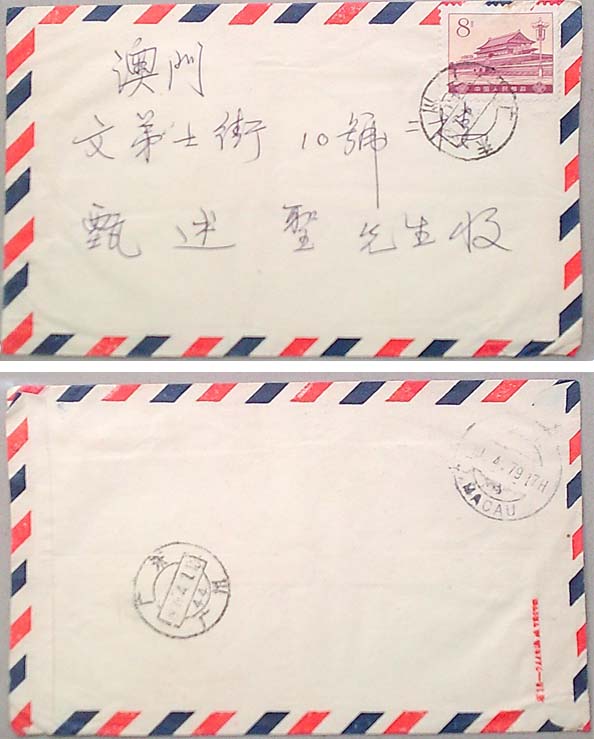 8分
中国人民邮政
澳門
文第士街 10號 二樓
甄述聖先生收
4.79 17H
MACAU
广东
广州